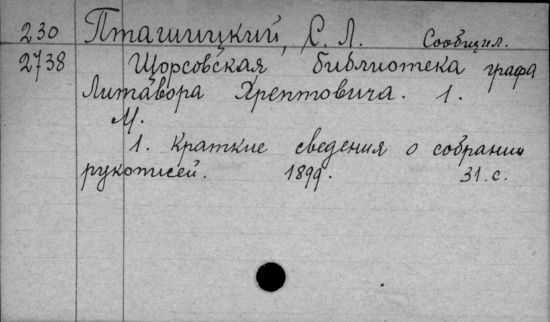 230 Пташицкий, С. Л. Сообщил.
2738 Щорсовская библиотека графа
Литавора Хрептовича. 1.
М.
1. Краткие сведения о собрании
рукописей. 1899. 31. с.